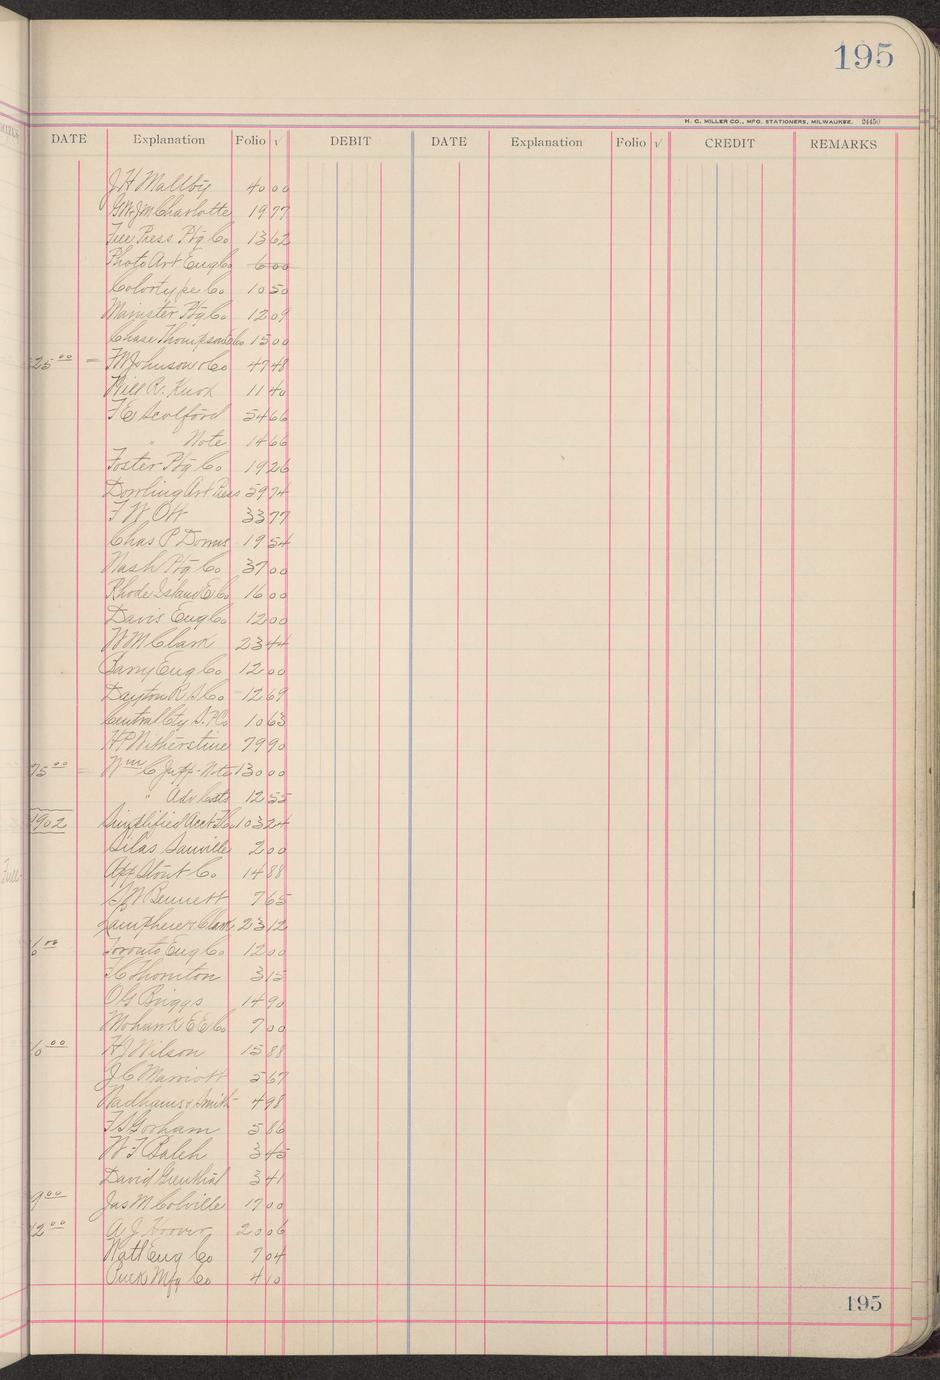 195
H. C. MILLER CO., MFG. STATIONERS, MILWAUKEE. 24450
DATE Explanation Folio √ DEBIT DATE Explanation Folio √ CREDIT REMARKS
J H Maltby 40 00
Charlotte 19 77
Free Press Ptg Co 13 62
Photo Art Eng Co 6 00
Colortype Co 10 50
Ptg Co 12 09
Chase Thompson Co 15 00
25 00 — F W Johnson & Co 47 48
Will R. Knox 11 40
F E Scolford 54 66
" Note 14 66
Foster Ptg Co 19 26
Dowling Art Press 59 74
F W Ott 33 77
Chas P Downs 19 54
Nash Ptg Co 37 00
Rhode Island E Co 16 00
Davis Eng Co 12 00
W M Clark 23 44
Barry Eng Co 12 00
Dayton R S Co 12 69
Central City 10 63
H P Witherstine 79 90
75 00 = Wm C Jupp - Note 130 00
" Adv Costs 12 55
1902 Simplified Acct 103 24
Silas Sanville 2 00
App Stout Co 14 88
Bennett 7 65
Lamphere & Clark 23 12
6 00 Toronto Eng Co 12 00
Thornton 3 15
O G Briggs 14 90
Mohawk E E Co 7 00
10 00 H J Wilson 15 88
J C Marriott 5 67
Wadhams & Smith 4 98
F S Gorham 5 86
W F Balch 3 45
David 3 41
9 00 Jas M Colville 17 00
12 00 A J Hoover 20 06
Natl Eng Co 7 04
Puck Mfg Co 4 10
195